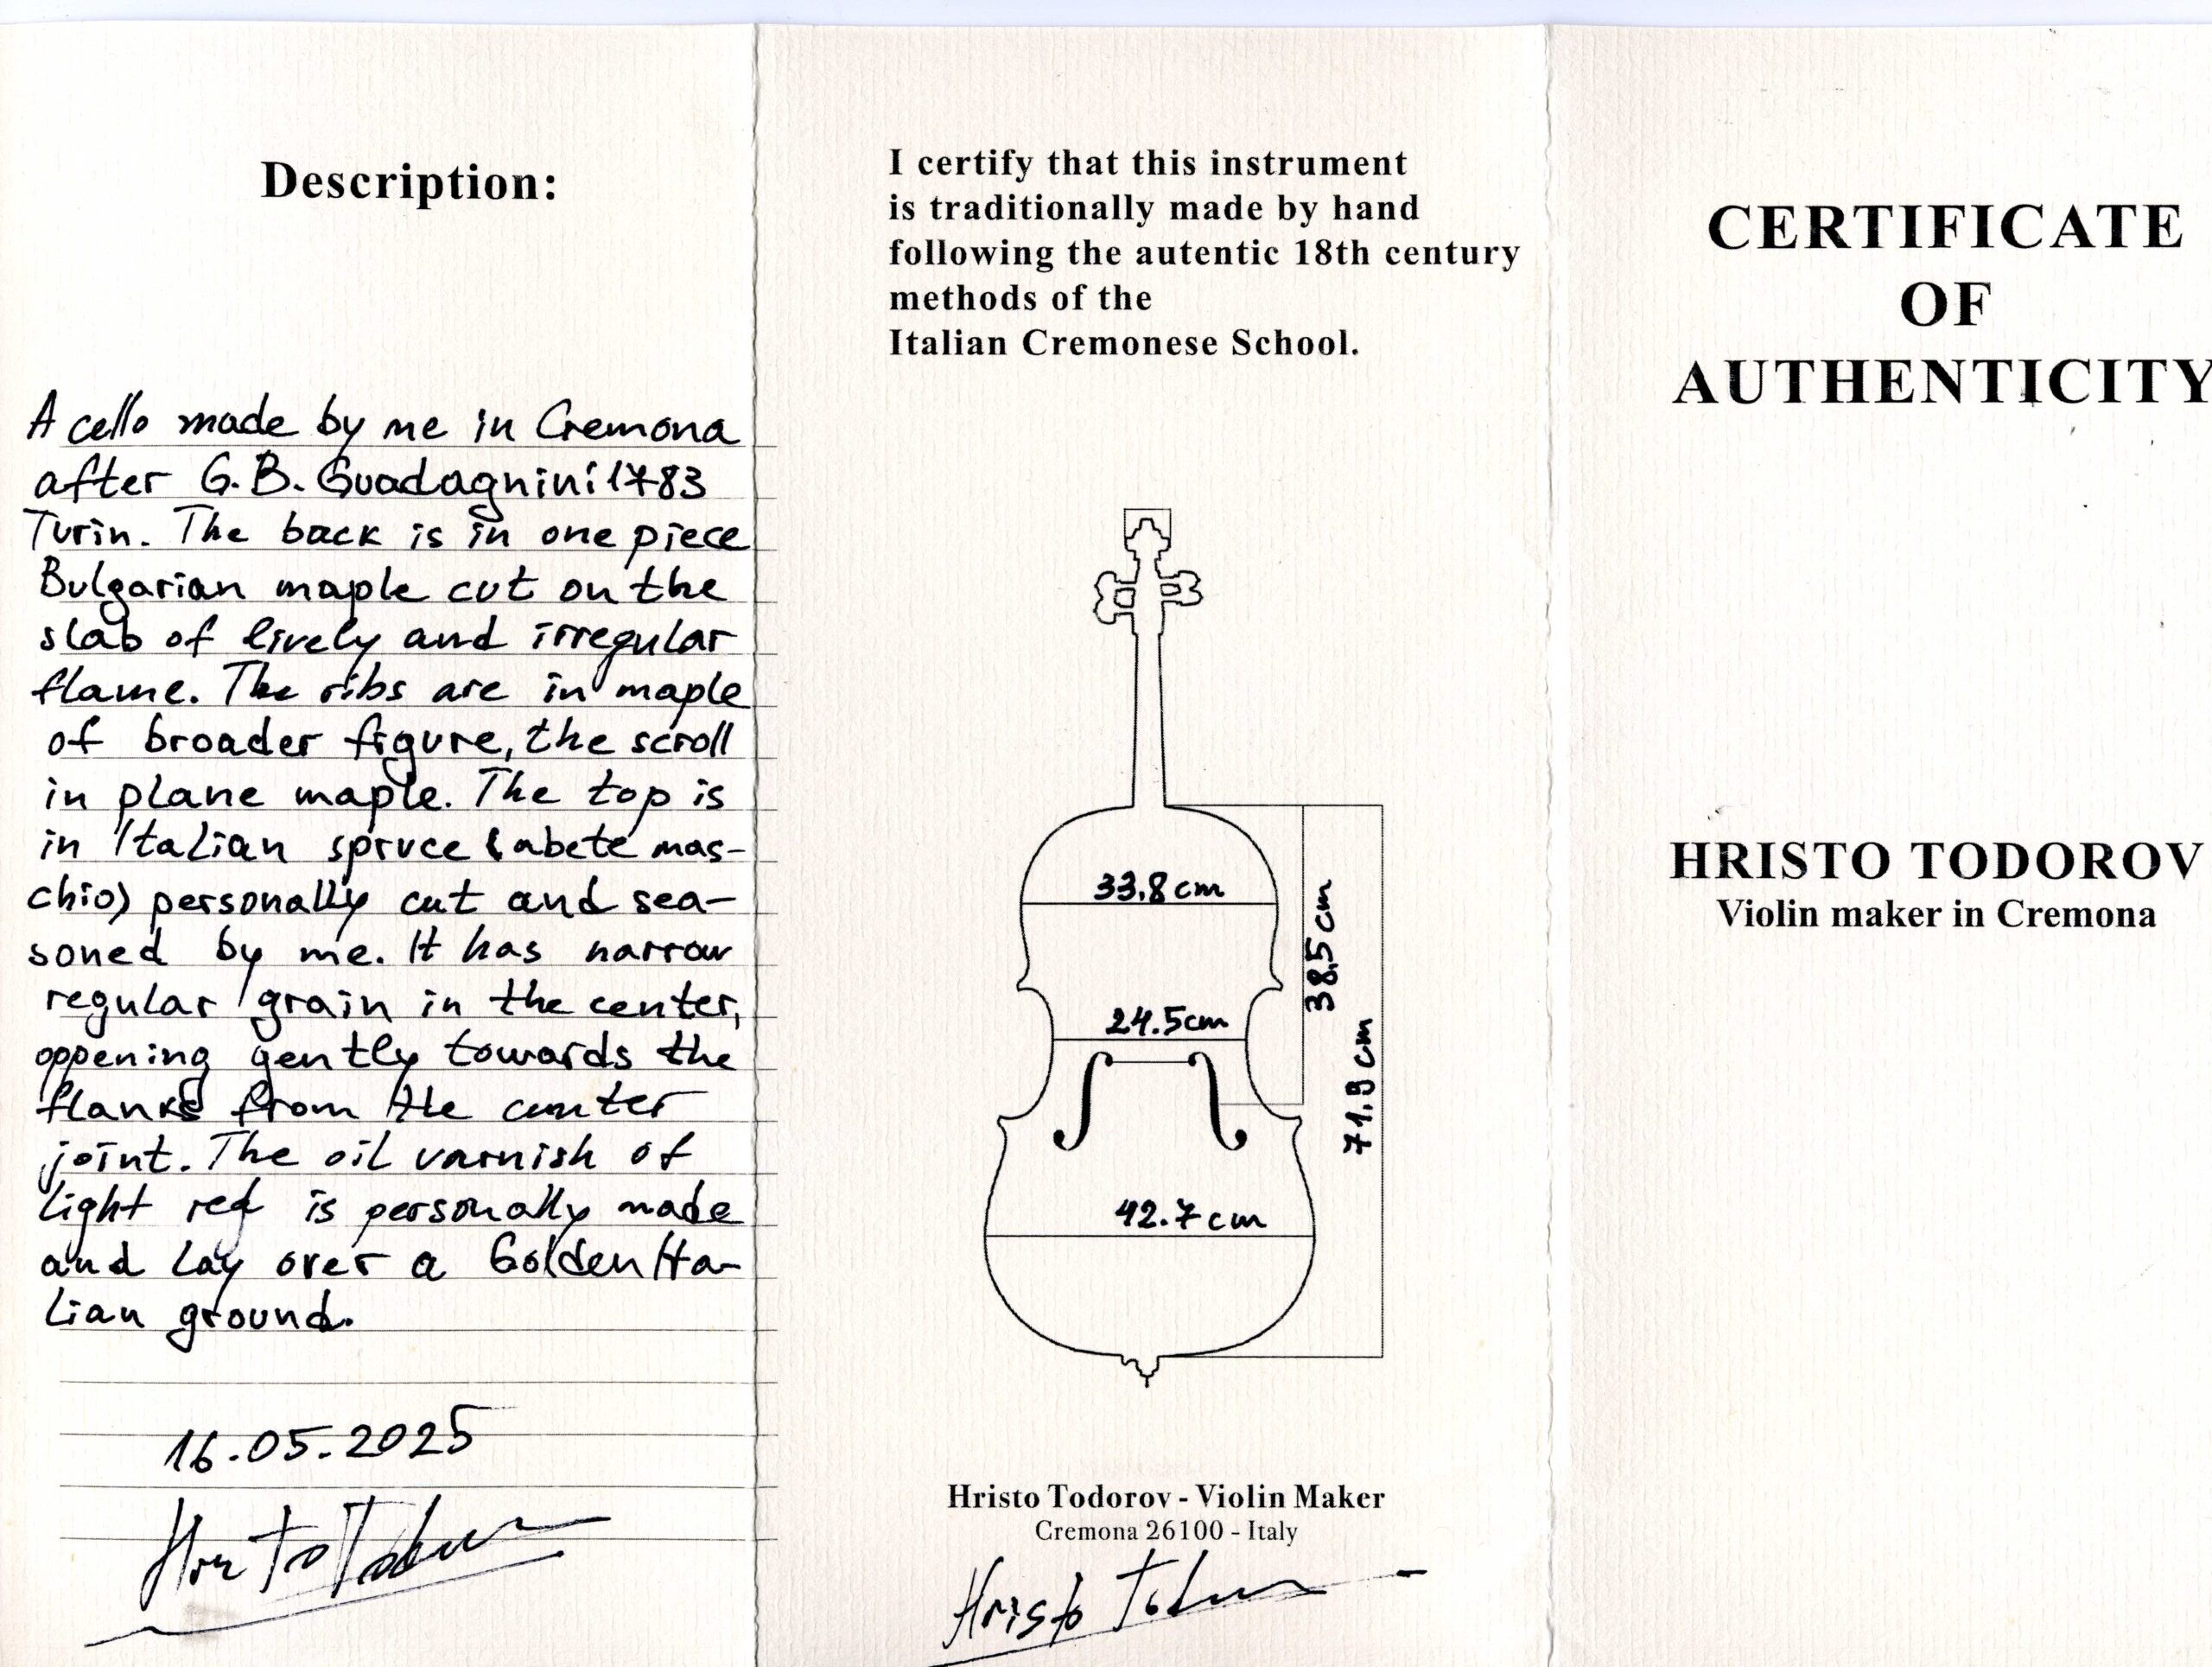 Description:
A cello made by me in Cremona
after G.B. Guadagnini 1783
Turin. The back is in one piece
Bulgarian maple cut on the
slab of lively and irregular
flame. The ribs are in maple
of broader figure, the scroll
in plane maple. The top is
in Italian spruce (abete mas-
chio) personally cut and sea-
soned by me. It has narrow
regular grain in the center,
oppening gently towards the
flanks from the center
joint. The oil varnish of
light red is personally made
and lay over a Golden Ita-
lian ground.
16.05.2025
Hristo Todorov
I certify that this instrument
is traditionally made by hand
following the autentic 18th century
methods of the
Italian Cremonese School.
33.8 cm
38.5 cm
24.5 cm
71.9 cm
42.7 cm
Hristo Todorov - Violin Maker
Cremona 26100 - Italy
Hristo Todorov
CERTIFICATE
OF
AUTHENTICITY
HRISTO TODOROV
Violin maker in Cremona